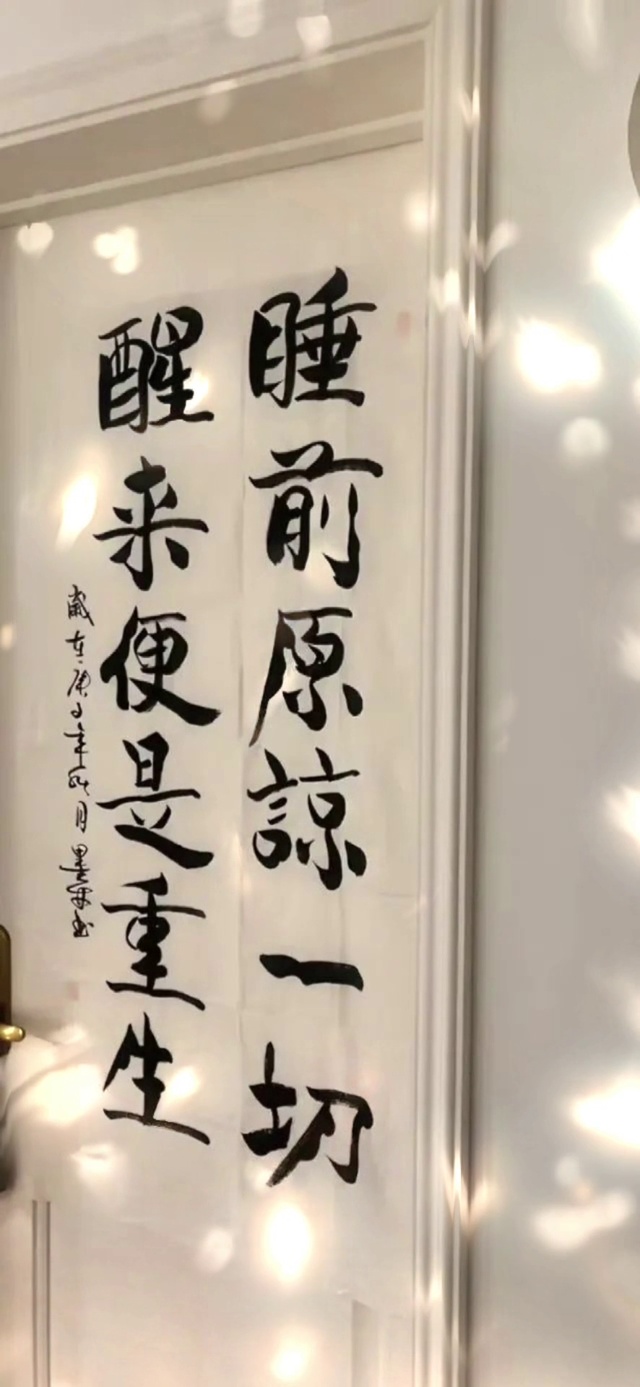 睡前原諒一切
醒来便是重生
歲在庚子年 月墨 书